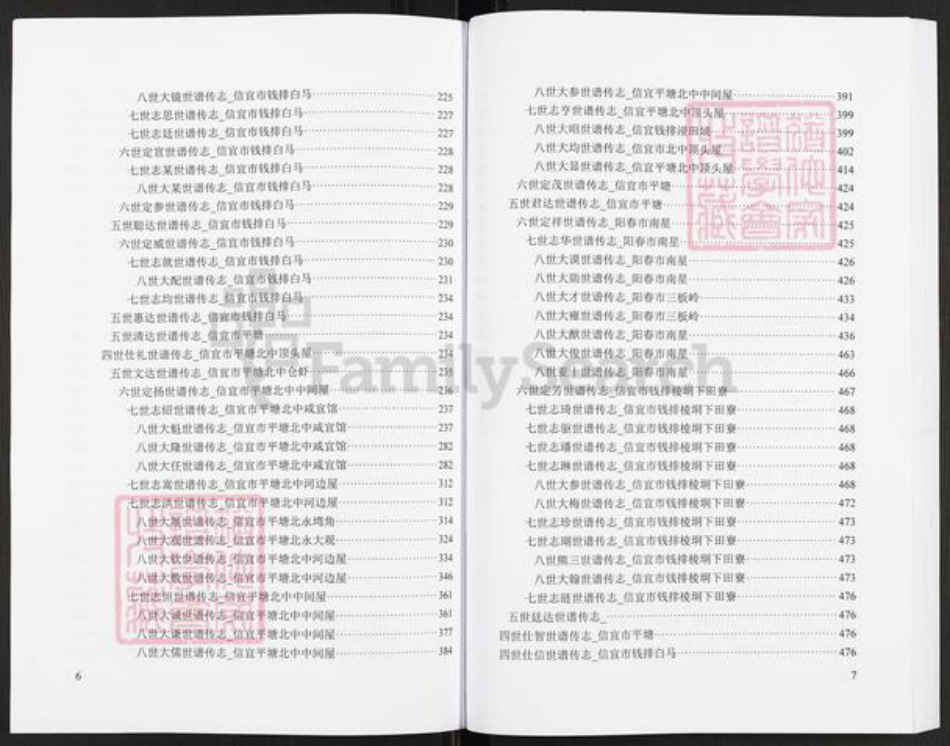 八世大镜世谱传志_信宜市钱排白马 225
七世志思世谱传志_信宜市钱排白马 227
七世志廷世谱传志_信宜市钱排白马 227
六世定宣世谱传志_信宜市钱排白马 228
七世志某世谱传志_信宜市钱排白马 228
八世大某世谱传志_信宜市钱排白马 228
六世定参世谱传志_信宜市钱排白马 229
五世聪达世谱传志_信宜市钱排白马 229
六世定威世谱传志_信宜市钱排白马 230
七世志就世谱传志_信宜市钱排白马 230
八世大配世谱传志_信宜市钱排白马 231
七世志均世谱传志_信宜市钱排白马 234
五世惠达世谱传志_信宜市钱排白马 234
五世清达世谱传志_信宜市平塘 234
四世仕礼世谱传志_信宜市平塘北中顶头屋 234
五世文达世谱传志_信宜市平塘北中仓虾 235
六世定扬世谱传志_信宜市平塘北中中间屋 236
七世志绍世谱传志_信宜市平塘北中咸宜馆 237
八世大魁世谱传志_信宜市平塘北中咸宜馆 237
八世大隆世谱传志_信宜市平塘北中咸宜馆 282
八世大任世谱传志_信宜市平塘北中咸宜馆 282
七世志嵩世谱传志_信宜市平塘北中河边屋 312
七世志洪世谱传志_信宜市平塘北中河边屋 312
八世大展世谱传志_信宜市平塘北永塆角 314
八世大观世谱传志_信宜市平塘北永大观 324
八世大钦世谱传志_信宜市平塘北中河边屋 334
八世大数世谱传志_信宜市平塘北中河边屋 346
七世志恒世谱传志_信宜平塘北中中间屋 361
八世大诚世谱传志_信宜平塘北中中间屋 361
八世大谦世谱传志_信宜平塘北中中间屋 377
八世大儒世谱传志_信宜平塘北中中间屋 384
6
八世大参世谱传志_信宜平塘北中中间屋 391
七世志亨世谱传志_信宜平塘北中顶头屋 399
八世大昭世谱传志_信宜钱排田 399
八世大均世谱传志_信宜市北中顶头屋 402
八世大显世谱传志_信宜平塘北中顶头屋 414
六世定茂世谱传志_信宜市平塘 424
五世君达世谱传志_信宜市平塘 424
六世定祥世谱传志_阳春市南星 425
七世志华世谱传志_阳春市南星 425
八世大谟世谱传志_阳春市南星 426
八世大勋世谱传志_阳春市南星 426
八世大才世谱传志_阳春市三板岭 433
八世大雍世谱传志_阳春市三板岭 434
八世大猷世谱传志_阳春市南星 436
八世大俊世谱传志_阳春市南星 463
八世亚士世谱传志_阳春市南星 466
六世定芳世谱传志_信宜市钱排梭垌下田寮 467
七世志琦世谱传志_信宜市钱排梭垌下田寮 468
七世志驱世谱传志_信宜市钱排梭垌下田寮 468
七世志璠世谱传志_信宜市钱排梭垌下田寮 468
七世志琳世谱传志_信宜市钱排梭垌下田寮 468
八世大参世谱传志_信宜市钱排梭垌下田寮 468
八世大梅世谱传志_信宜市钱排梭垌下田寮 472
七世志珍世谱传志_信宜市钱排梭垌下田寮 473
七世志瑚世谱传志_信宜市钱排梭垌下田寮 473
八世熊三世谱传志_信宜市钱排梭垌下田寮 473
八世大翰世谱传志_信宜市钱排梭垌下田寮 473
七世志琏世谱传志_信宜市钱排梭垌下田寮 476
五世廷达世谱传志_ 476
四世仕智世谱传志_信宜市平塘 476
四世仕信世谱传志_信宜市钱排白马 476
7
FamilySearch